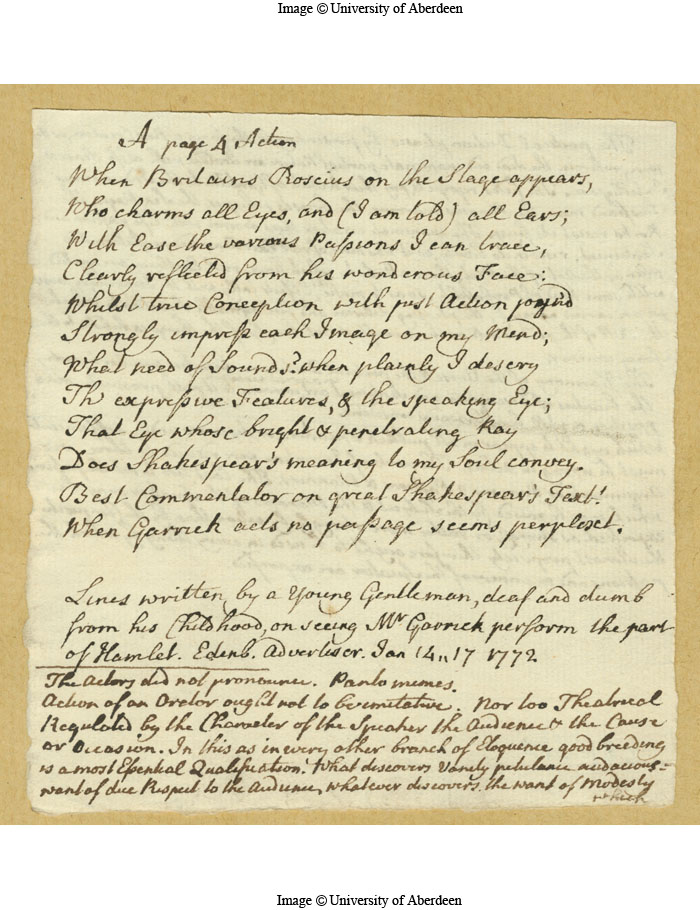 Image © University of Aberdeen
A page 4 Action
When Britains Roscius on the Stage appears,
Who charms all Eyes, and (I am told) all Ears;
With Ease the various Passions I can trace,
Clearly reflected from his wonderous Face;
Whilst true Conception with just Action joynd
Strongly impress each Image on my Mind;
What need of Sounds? when plainly I descry
Th' expressive Features, & the speaking Eye;
That Eye whose bright & penetrating Ray
Does Shakespear's meaning to my Soul convey.
Best Commentator on great Shakespear's Text!
When Garrick acts no passage seems perplext.
Lines written, by a Young Gentleman, deaf and dumb
from his Childhood, on seeing Mr Garrick perform the part
of Hamlet. Edinb. Advertiser. Jan 14,, 17 1772
The Actors did not pronounce. Pantomimes.
Action of an Orator ought not to be imitative. Nor too Theatrical
Regulated by the Character of the Speaker the Audience & the Cause
or Occasion. In this as in every other branch of Eloquence good breeding
is a most Essential Qualification. What discovers Vanity petulance audacious=
want of due Respect to the Audience, whatever discovers the want of Modesty
which
Image © University of Aberdeen